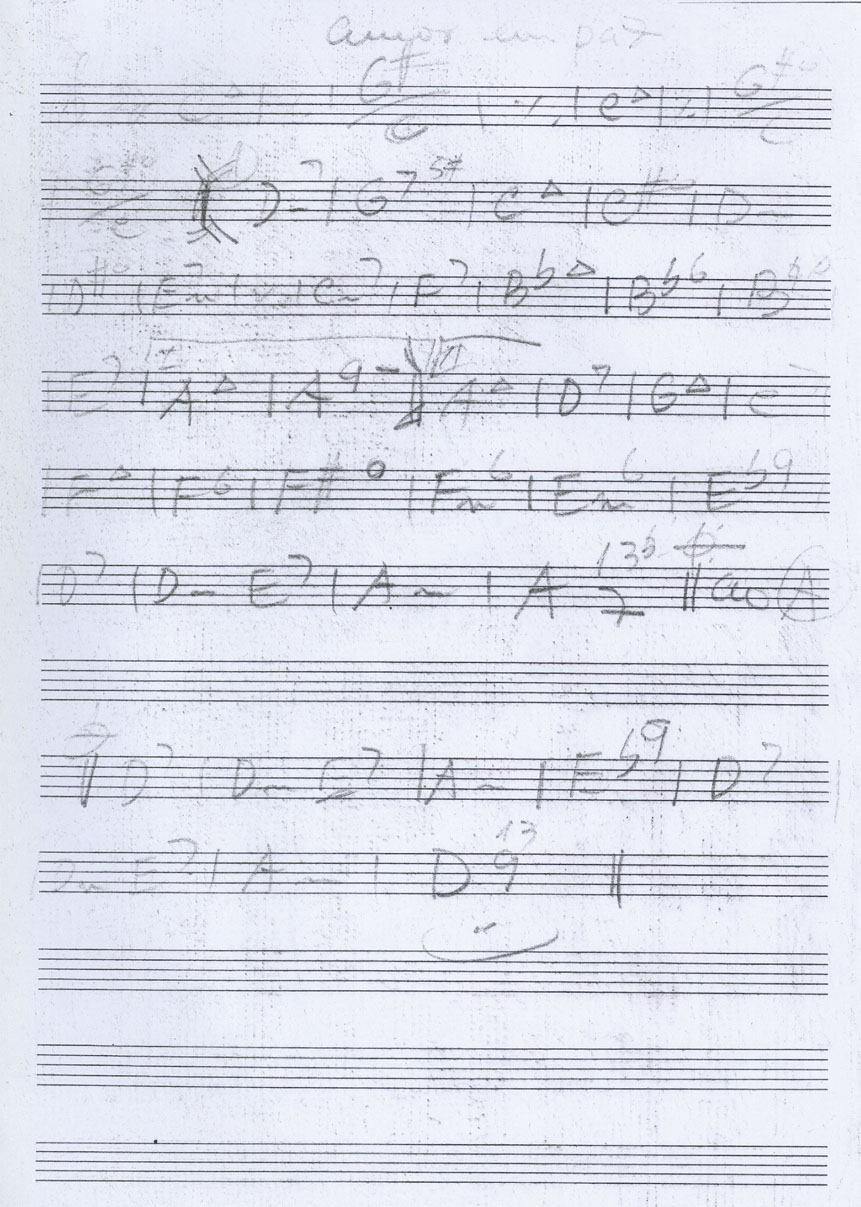 amor em paz
C△ | ٪ | G#/C | ٪ | C△ | ٪ | G#°/C
G#°/C (A) D-7 | G7 5# | C△ | C#° | D-
| D#° | Em7 | ٪ | Cm7 | F7 | Bb△ | Bb6 | Bb△
E7 | I A△ | A9- II A△ | D7 | G△ | C7
F△ | F6 | F#° | Fm6 | Em6 | Eb9
| D7 | D- E7 | A- | A 13b 7 || ao (A)
|| D7 | D- E7 | A- | Eb9 | D7
Dm E7 | A- | D 13 9 ||